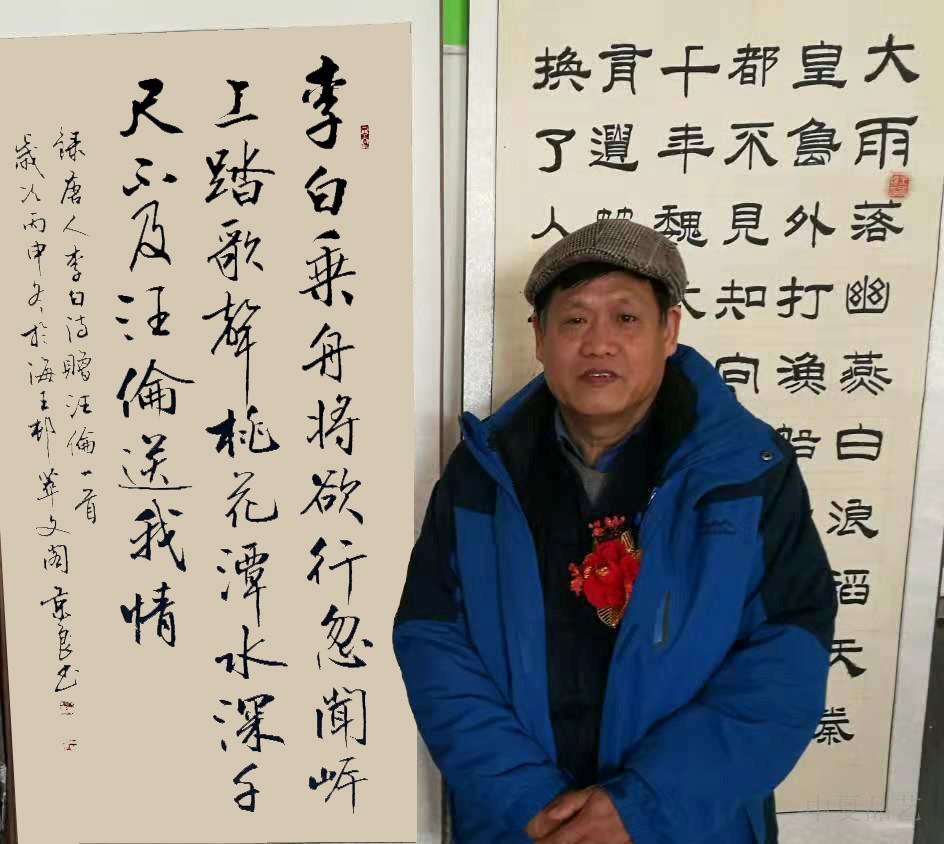 李白乘舟將欲行忽聞岸
上踏歌聲桃花潭水深千
尺不及汪倫送我情
錄唐人李白詩贈汪倫一首
歲次丙申冬於海王邨萃文阁京良书
大雨落幽燕白浪滔天秦
皇島外打漁船
都不見知向
千年魏
有遺
換了人